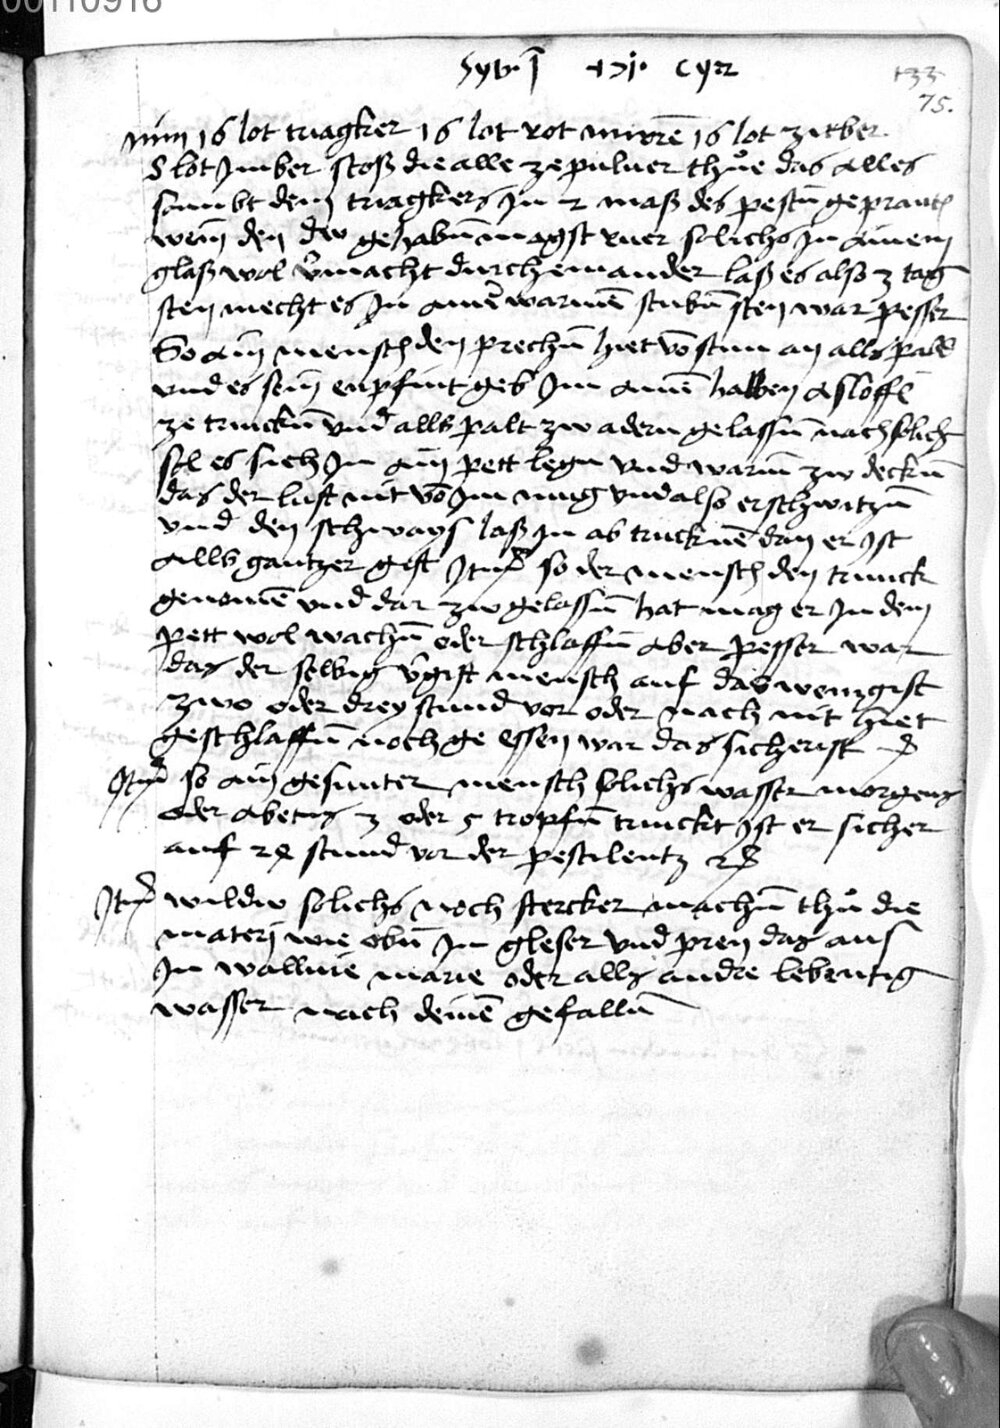 00110916
133
75.
nim 16 lot triagker 16 lot rot mirrē 16 lot zitber
8 lot Jmber stoß die alle ze puluer thue das alles
sambt dem triagkers Jn 2 maß des pestn geprantn
wein den dw gehabn magst vner solichs Jn ainem
glaß wol vmacht durch einander laß es also 3 tag
sten mecht es Jn ainer warmē stubn sten war pesser
So ain mensch den prechn hiet vō stun an alls pald
vnd es sein enpfint geb Jm ainē halben asloffl
ze trinckn vnd alls palt zw adern gelassn nach solich
sol es sich Jn ain pett legn vnd warm zw deckn
das der luft nit vō Jm mug vnd also erschwitzn
vnd den schways laß Jn ab trucknē dan er Jst
alls gantzer gift Jtm so der mensch den trinck
genomē vnd dar zw gelassn hat mag er Jn dem
pett wol wachn oder schlaffn aber pesser war
das der selbig vgift mensch auf das wenigist
zwo oder drey stund vor oder nach nit hiet
geschlaffn noch ge essen war das sicherist
Jtm so ain gesunter mensch solichs wasser morgens
oder abents 3 oder 5 tropfn trinckt Jst er sicher
auf 24 stund vor der pestilentz
Jtm wildw solichs noch stercker machn thu die
materj wie obn Jn gleser vnd pren das aus
Jn wallnie marie oder alls andre lebentig
wasser nach deinē gefalln